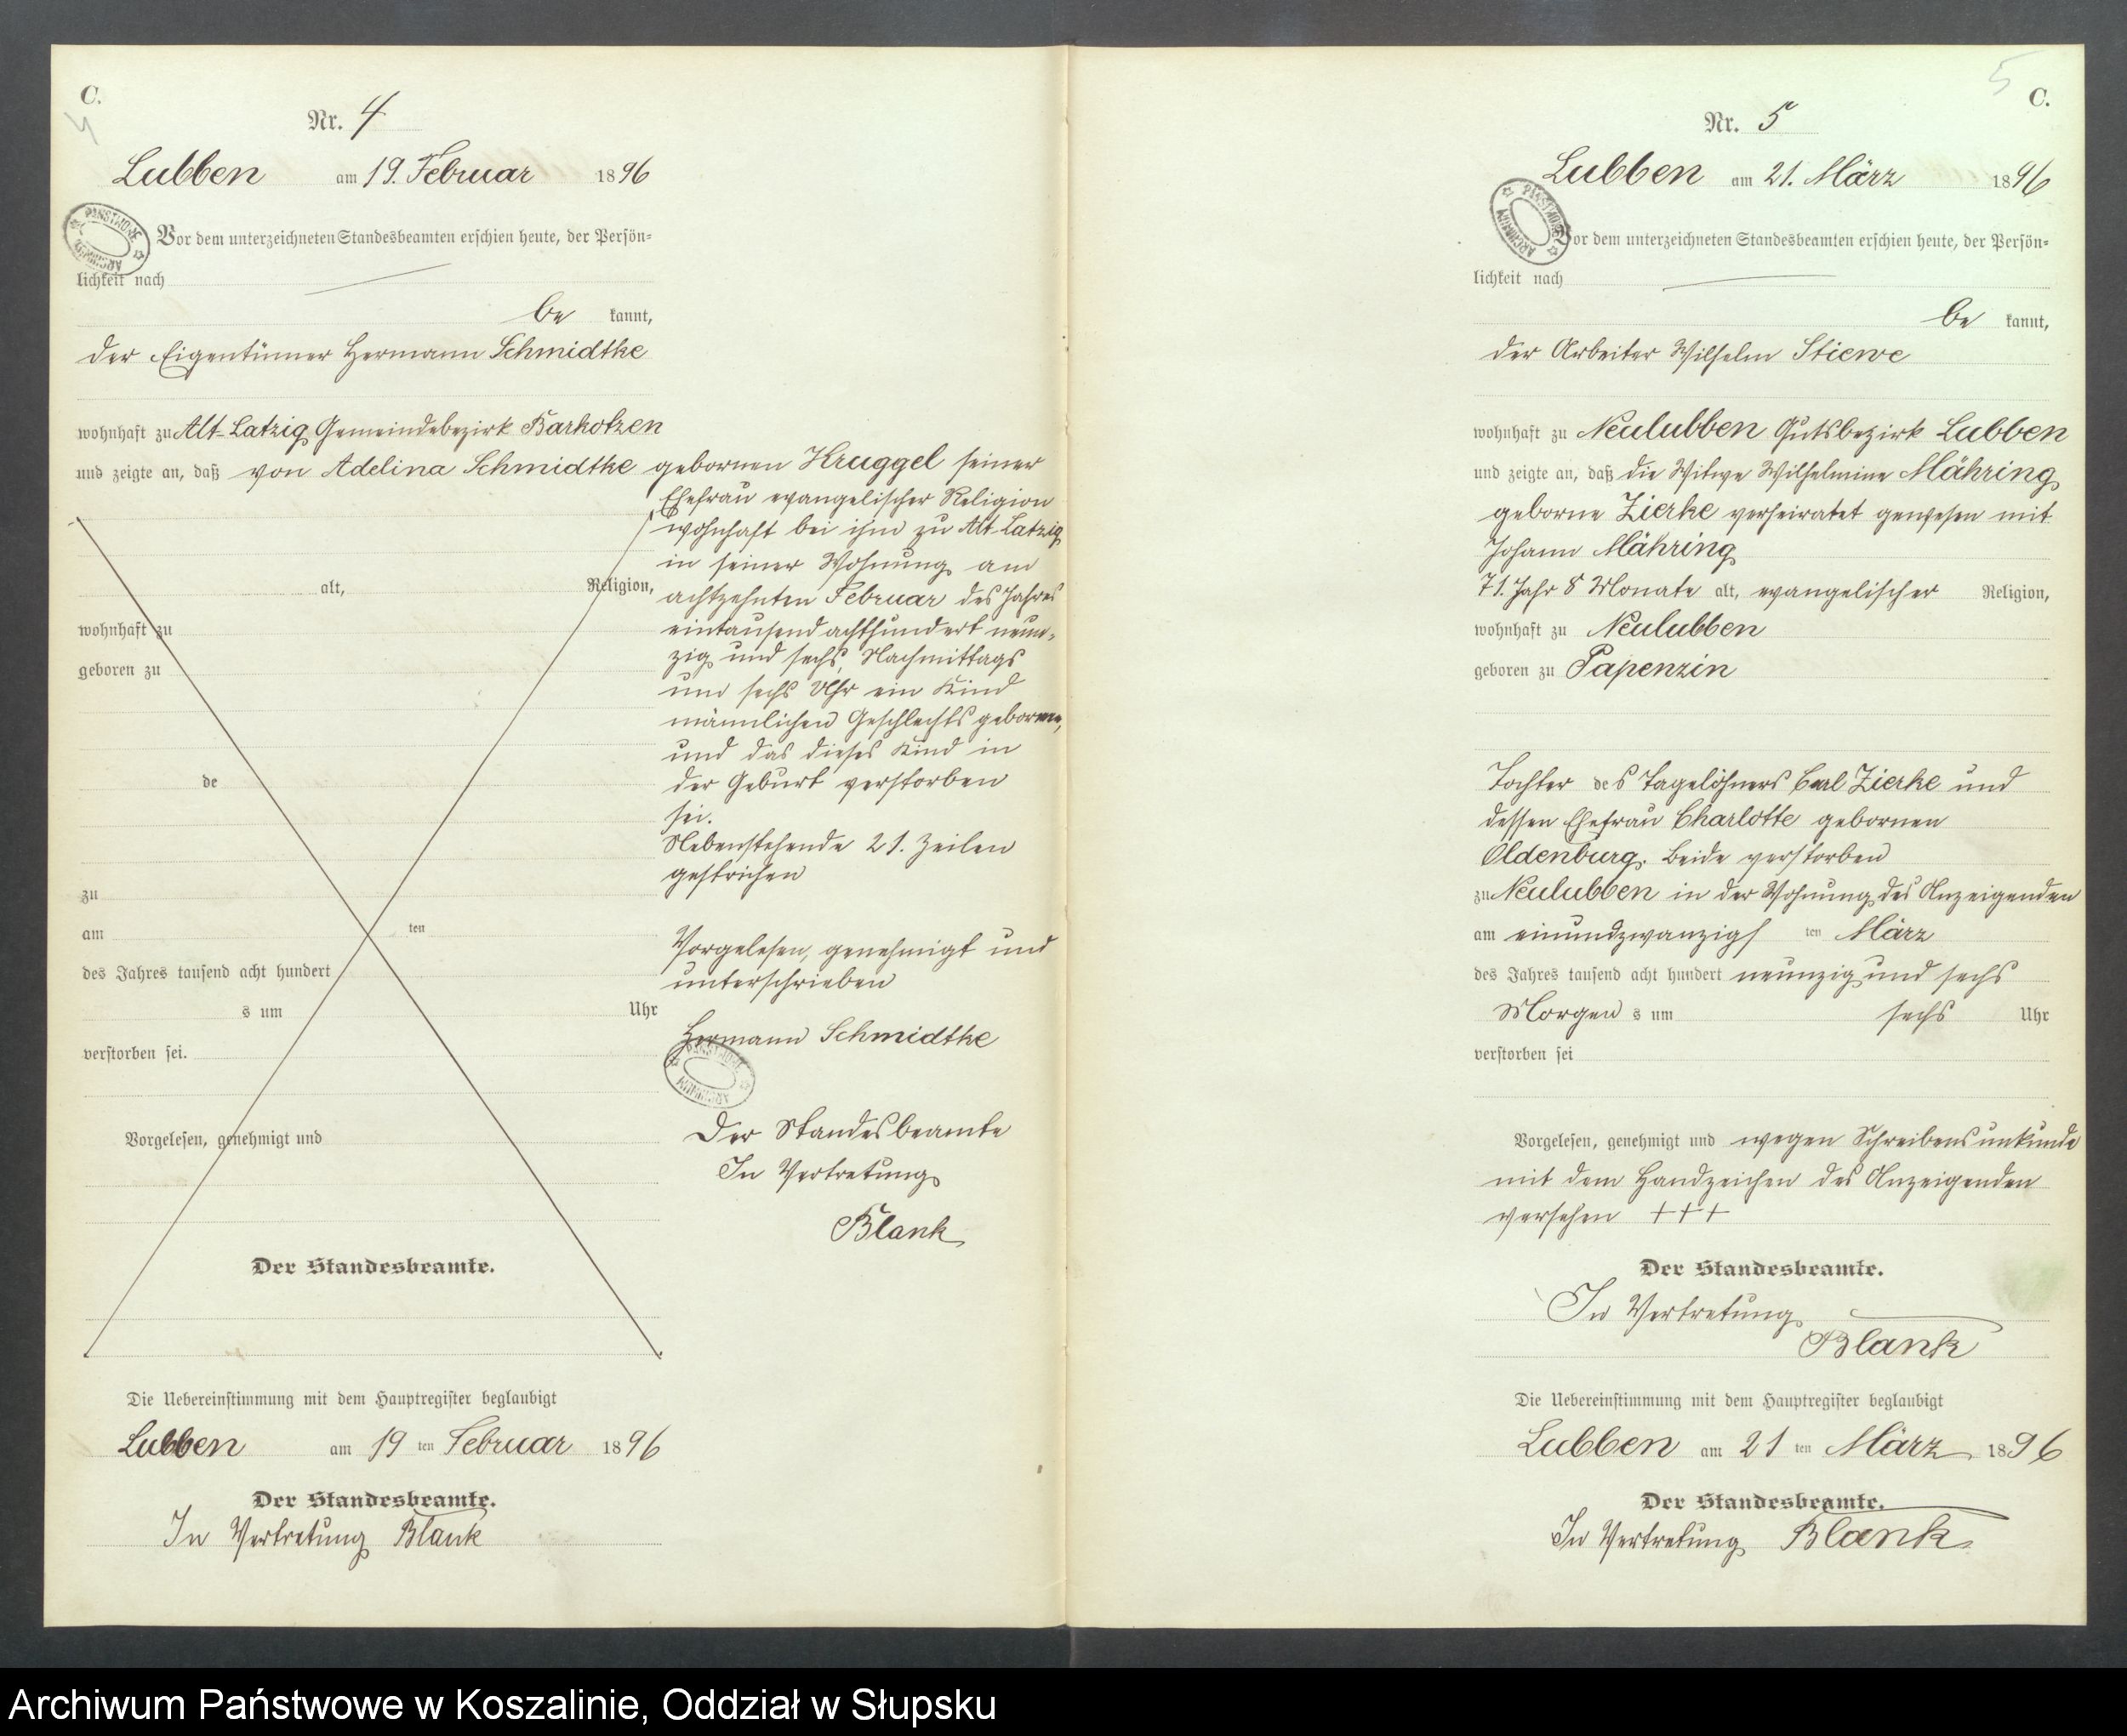 C.
4
Nr. 4
Lubben am 19. Februar 1896
PAŃSTWOWE ARCHIWUM
Vor dem unterzeichneten Standesbeamten erschien heute, der Persön-
lichkeit nach
be kannt,
der Eigentümer Hermann Schmidtke
wohnhaft zu Alt-Latzig Gemeindebezirk Barkotzen
und zeigte an, daß von Adelina Schmidtke gebornen Kruggel seiner
Ehefrau evangelischer Religion
wohnhaft bei ihm zu Alt Latzig
in seiner Wohnung am
achtzehnten Februar des Jahres
eintausend achthundert neun-
zig und sechs, Nachmittags
um sechs Uhr ein Kind
männlichen Geschlechts geboren,
und das dieses Kind in
der Geburt verstorben
sei.
Nebenstehende 21. Zeilen
gestrichen
Vorgelesen, genehmigt und
unterschrieben
Hermann Schmidtke
PAŃSTWOWE ARCHIWUM
Der Standesbeamte
In Vertretung
Blank
alt, Religion,
wohnhaft zu
geboren zu
de
zu
am ten
des Jahres tausend acht hundert
s um Uhr
verstorben sei.
Vorgelesen, genehmigt und
Der Standesbeamte.
Die Uebereinstimmung mit dem Hauptregister beglaubigt
Lubben am 19 ten Februar 1896
Der Standesbeamte.
In Vertretung Blank
5
C.
Nr. 5
Lubben am 21. März 1896
PAŃSTWOWE ARCHIWUM
Vor dem unterzeichneten Standesbeamten erschien heute, der Persön-
lichkeit nach
be kannt,
der Arbeiter Wilhelm Stiewe
wohnhaft zu Neulubben Gutsbezirk Lubben
und zeigte an, daß die Witwe Wilhelmine Mähring
geborne Zierke verheiratet gewesen mit
Johann Mähring
71. Jahr 8 Monate alt, evangelischer Religion,
wohnhaft zu Neulubben
geboren zu Papenzin
Tochter des Tagelöhners Carl Zierke und
dessen Ehefrau Charlotte gebornen
Oldenburg. Beide verstorben
zu Neulubben in der Wohnung des Anzeigenden
am einundzwanzigsten März
des Jahres tausend acht hundert neunzig und sechs
Morgens um sechs Uhr
verstorben sei
Vorgelesen, genehmigt und wegen Schreibensunkunde
mit dem Handzeichen des Anzeigenden
versehen +++
Der Standesbeamte.
In Vertretung
Blank
Die Uebereinstimmung mit dem Hauptregister beglaubigt
Lubben am 21 ten März 1896
Der Standesbeamte.
In Vertretung Blank
Archiwum Państwowe w Koszalinie, Oddział w Słupsku